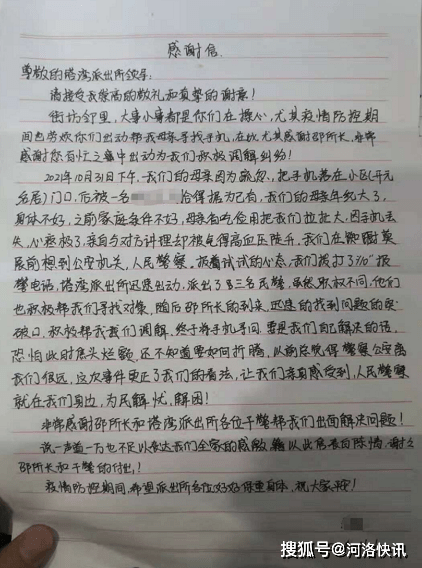 感谢信
尊敬的塔湾派出所领导:
请接受我崇高的敬礼和真挚的谢意!
街坊邻里,大事小事都是你们在操心,尤其疫情防控期
间也劳烦你们出动帮我母亲寻找手机,在此尤其感谢邵所长,非常
感谢您百忙之中出动为我们积极调解纠纷!
2021年10月31日下午,我们的母亲因为疏忽,把手机落在小区(开元
名居)门口,后被一名 捡得据为己有,我们的母亲年纪大了,
身体不好,之前家庭条件不好,母亲省吃俭用把我们拉扯大,因手机丢
失,心急极了,亲自与对方讲理却被气得高血压陡升,我们在
展前想到公安机关,人民警察。抱着试试的心态,我们拨打了"110"报
警电话,塔湾派出所迅速出动,派出了3名民警,虽然职权不同,他们
也积极帮我们寻找对像,随后邵所长的到来,迅速的找到问题的突
破口,积极帮我我们调解,终于将手机寻回,要是我们自己解决的话,
恐怕此时焦头烂额,还不知道要如何折腾,以前总觉得警察公安离
我们很远,这次事件更正了我们的看法,让我们亲身感受到,人民警察
就在我们身边,为民解忧,解困!
非常感谢邵所长和塔湾派出所各位干警帮我们出面解决问题!
说一声道一万也不足以表达我们全家的感激,籍以此 陈情,谢谢
邵所长和干警的付出!
疫情防控期间,希望派出所各位好好保重身体,祝大家 !
搜狐号@河洛快讯